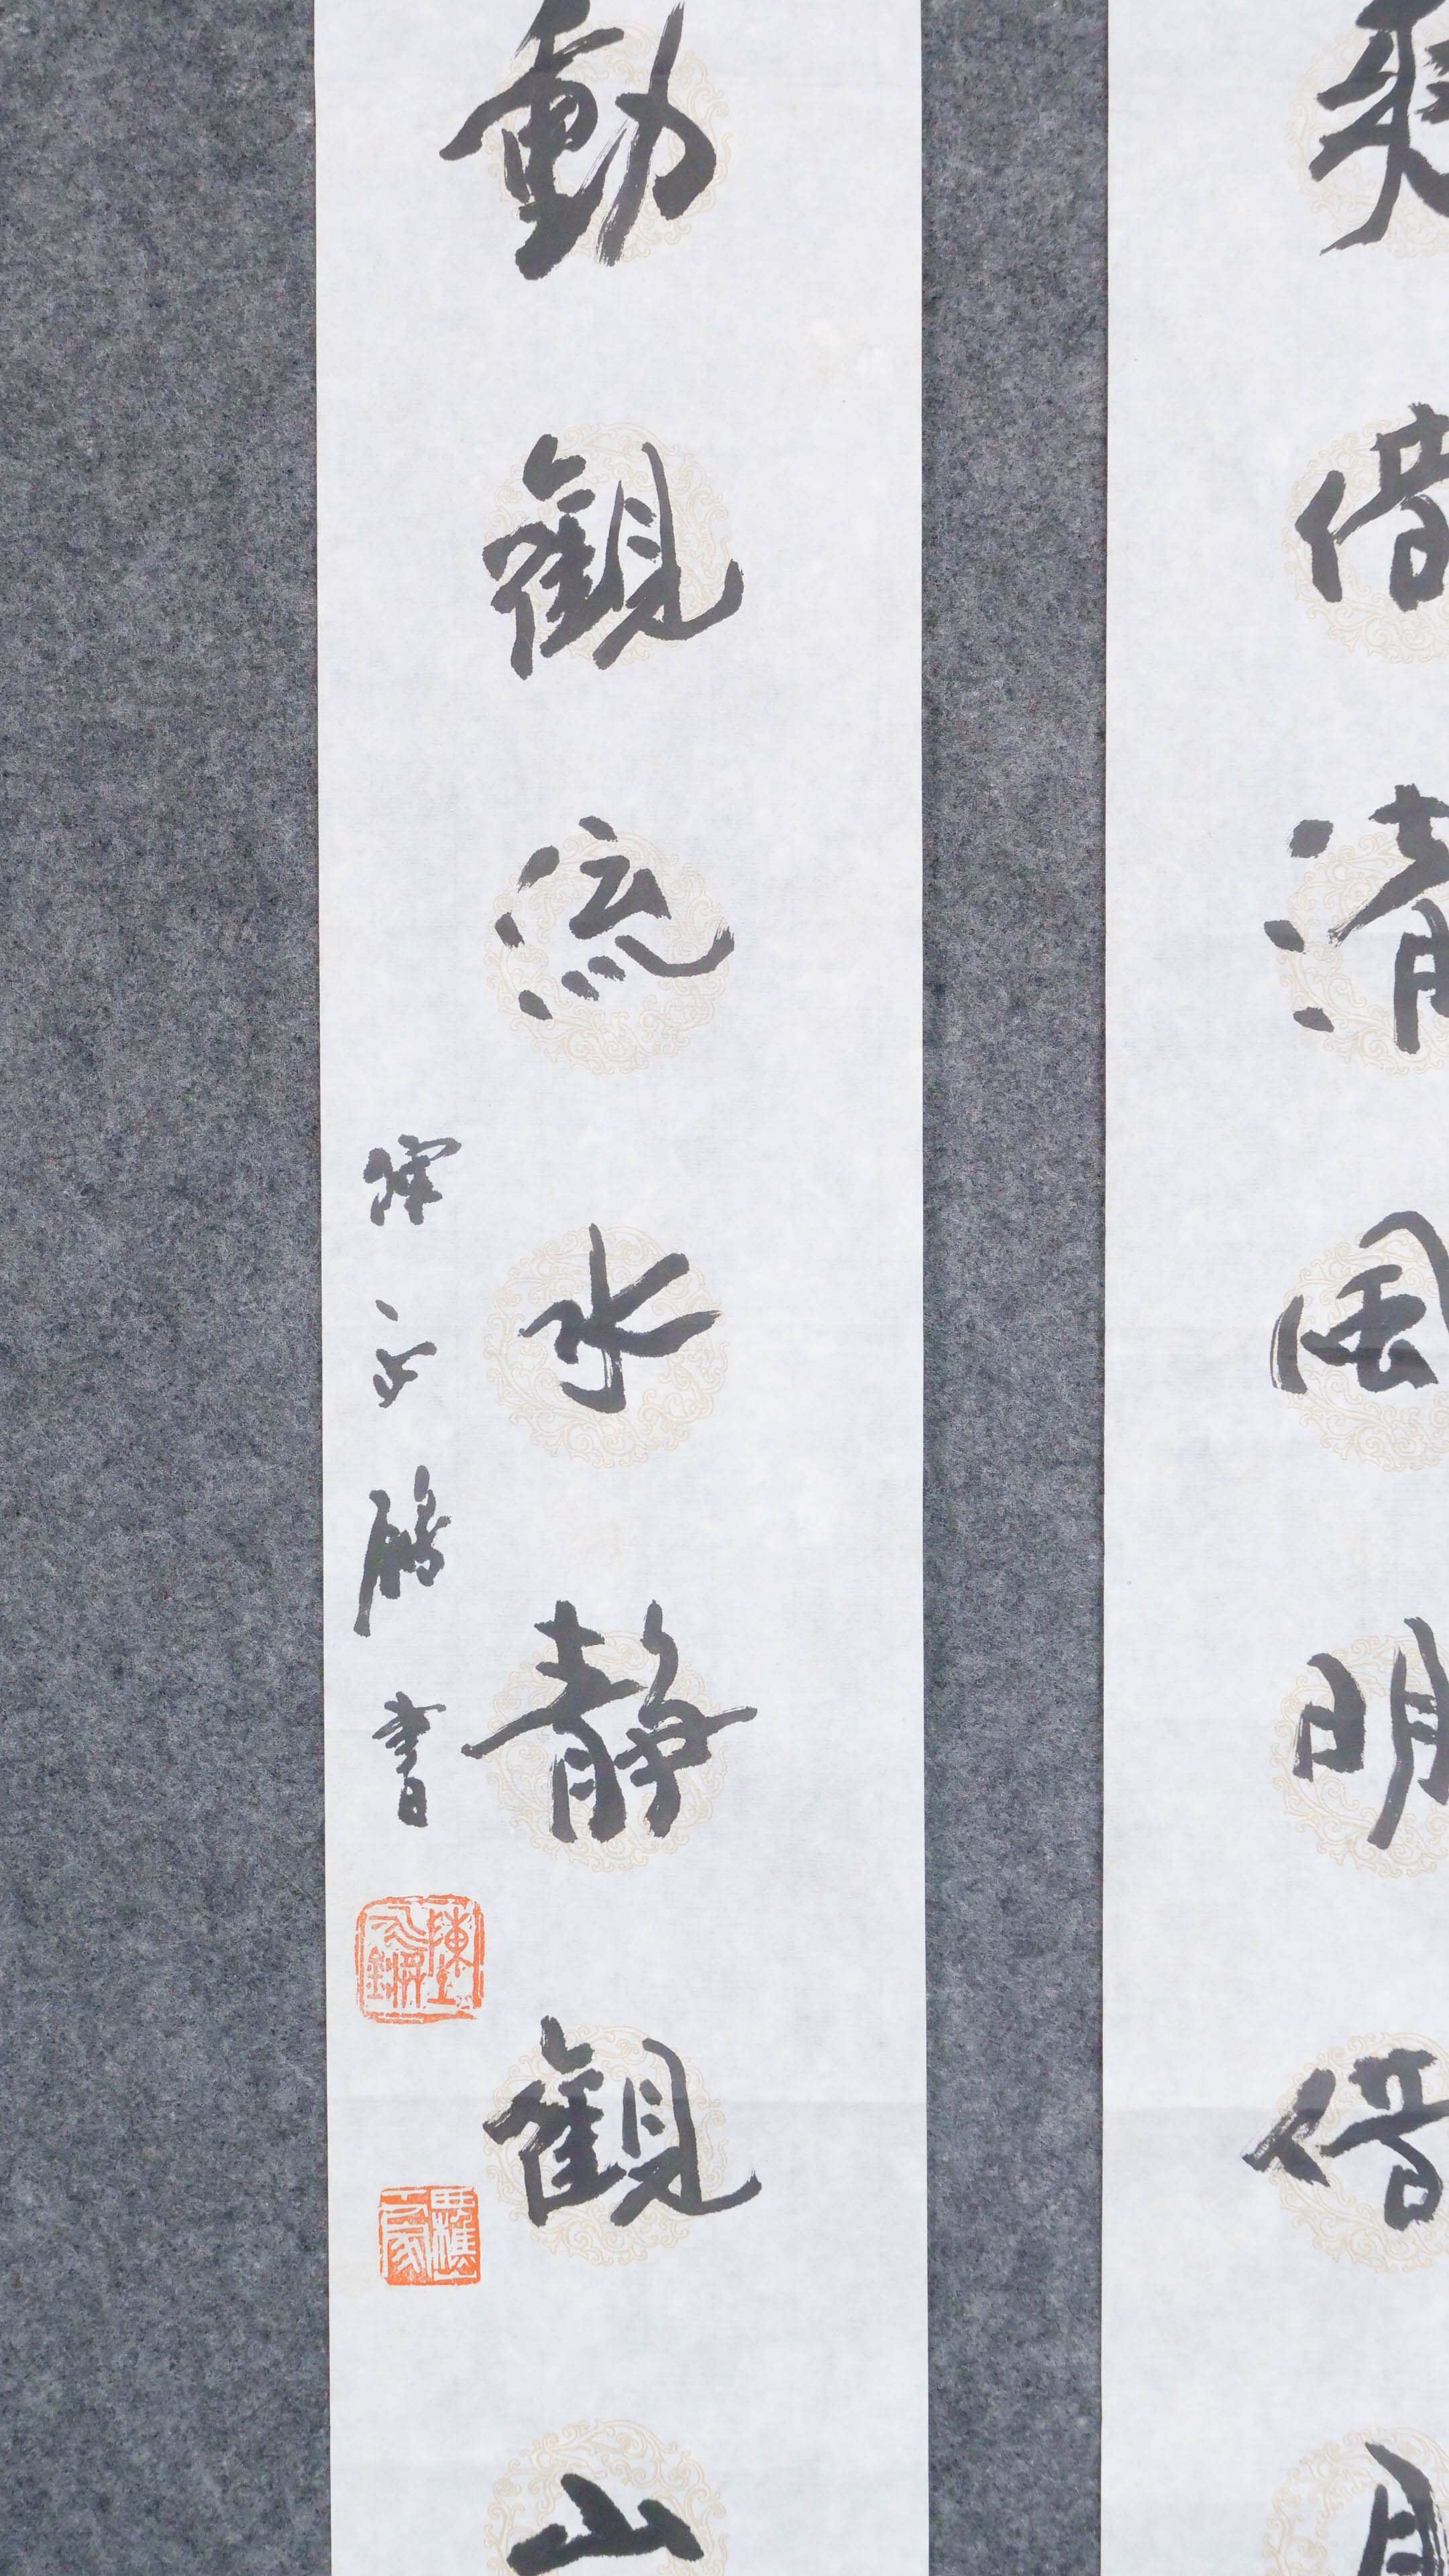 爽借清風明借月
動觀流水静觀山
陳
書